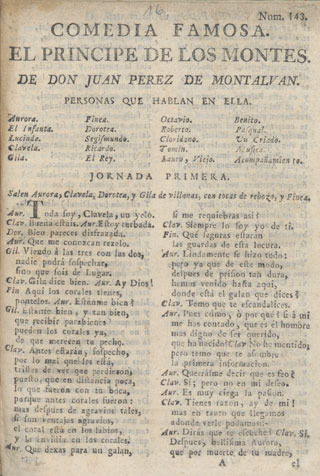 16
Num. 143.
COMEDIA FAMOSA.
EL PRINCIPE DE LOS MONTES.
DE DON JUAN PEREZ DE MONTALVAN.
PERSONAS QUE HABLAN EN ELLA.
Aurora. Finea. Octavio. Benito.
El Infanta. Dorotea. Roberto. Pasqual.
Lucinda. Segismundo. Cloridano. Un Criado.
Clavela. Ricardo. Tentu. Musica.
Gila. El Rey. Lauro, Viejo. Acompañamiento.
JORNADA PRIMERA.
Salen Aurora, Clavela, Dorotea, y Gila de villanas, con tocas de rebozo, y Finea.
Aur. Toda soy, Clavela, un yelo.
Clav. Buena estais. Aur. Estoy turbada.
Dor. Bien pareces disfrazada.
Aur. Que me conozcan rezelo.
Gil. Viendo á las tres con las dos,
nadie podrá sospechar,
sino que sois de Lugar.
Clav. Gila dice bien. Aur. Ay Dios!
Fin. Aquí los corales tienes,
pontelos. Aur. Estánme bien?
Gil. Estante bien, y tan bien,
que recibir parabienes
pueden los corales ya,
de que merecen tu pecho.
Clav. Antes estarán, sospecho,
por lo mal que les está,
tristes de ver que perdieron,
puesto que en distancia poca,
lo que fueron con tu boca,
porque antes corales fueron:
mas despues de agravios tales,
si son ventajas agravios,
el coral está en los labios,
y la envidia en los corales.
Aur. Que dexas para un galan,
si me requiebras así?
Clav. Siempre lo soy yo de ti.
Fin. Qué seguras estarán
las guardas de esta locura.
Aur. Lindamente se hizo todo:
pero ya que de este modo,
despues de prision tan dura,
hemos venido hasta aqui,
donde está el galan que dices?
Clav. Temo que te escandalices.
Aur. Pues cómo, ó por qué? si á mí
me has contado, que es el hombre
mas digno de ser querido,
que ha nacido? Clav. No he mentido,
pero temo que te asombre
la primera informacion.
Aur. Querrásme decir que es feo?
Clav. Sí; pero no en mi deseo.
Aur. Es muy ciega la pasion.
Clav. Tienes razon, ay de mi!
mas en tanto que llegamos
adonde verle podamos:
Aur. Dirás que te escuche? Clav. Sí.
Despues, bellisima Aurora,
que por muerte de tu madre,
A el